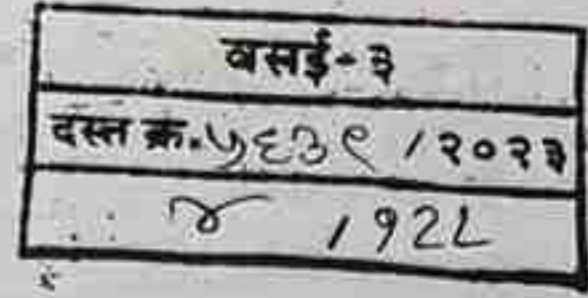 वसई - ३
दस्त क्र. ५६३९ / २०२३
४ / १२८